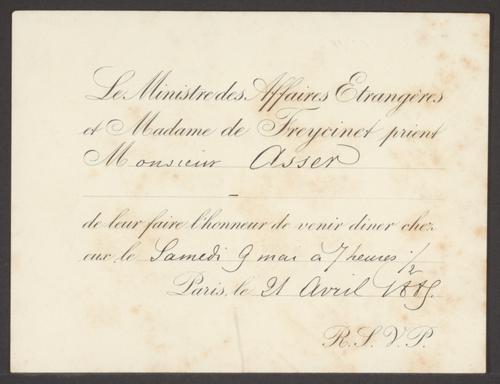 Le Ministre des Affaires Etrangères
et Madame de Freycinet prient
Monsieur Asser
de leur faire l'honneur de venir dîner chez
eux le Samedi 9 mai à 7 heures 1/2
Paris, le 21 Avril 1885.
R.S.V.P.